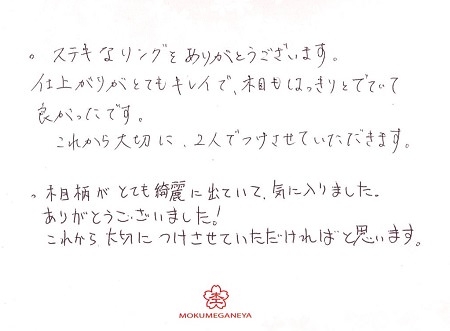 。ステキなリングをありがとうございます。
仕上がりがとてもキレイで、木目もはっきりとでていて
良かったです。
これから大切に、2人でつけさせていただきます。
。木目柄がとても綺麗に出ていて、気に入りました。
ありがとうございました!
これから大切につけさせていただければと思います。
MOKUMEGANEYA